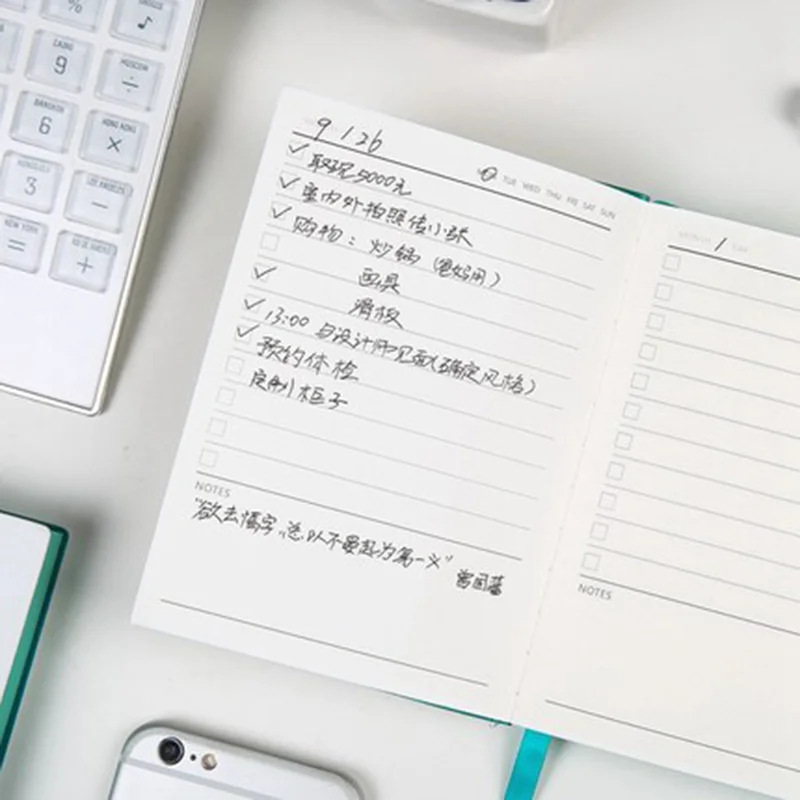 %
♪
CAIRO
9
MOSCOW
÷
BANGKOK
6
HONG KONG
×
HONOLULU
3
LOS ANGELES
−
NEW YORK
=
+
9 / 26
TUE WED THU FRI SAT SUN
取现5000元
室内外拍照传小张
购物：炒锅（老妈用）
面具
滑板
13:00 与设计师见面(确定风格)
预约体检
定制柜子
NOTES
"欲去惰字，总以不晏起为第一义"
曾国藩
/
NOTES